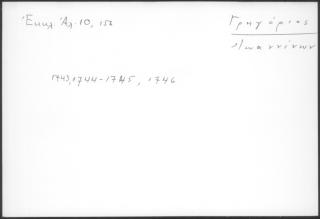 Ἐκκλ. Ἀλ. 10, 156
Γρηγόριος
Ἰωαννίνων
1743, 1744-1745, 1746